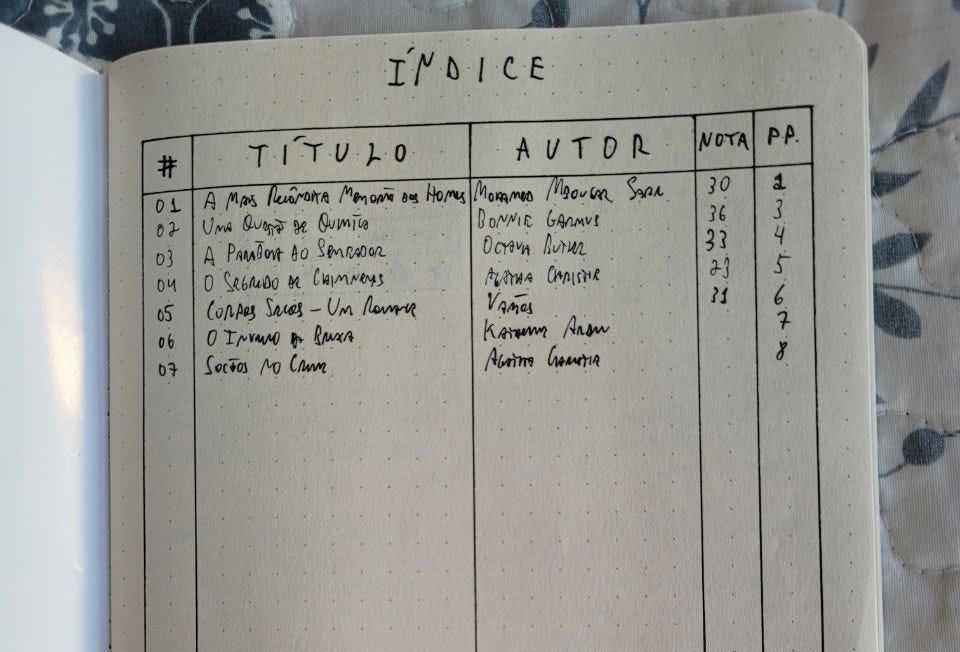 ÍNDICE
# TÍTULO AUTOR NOTA PP.
01 A MAIS RECÔNDITA MEMÓRIA DOS HOMENS MOHAMED MBOUGAR SARR 30 1
02 UMA QUESTÃO DE QUÍMICA BONNIE GARMUS 36 3
03 A PARÁBOLA DO SEMEADOR OCTAVIA BUTLER 33 4
04 O SEGREDO DE CHIMNEYS AGATHA CHRISTIE 23 5
05 CORPOS SECOS - UM ROMANCE VÁRIOS 31 6
06 O INVERNO DA BRUXA KATHERINE ARDEN 7
07 SÓCIOS NO CRIME AGATHA CHRISTIE 8